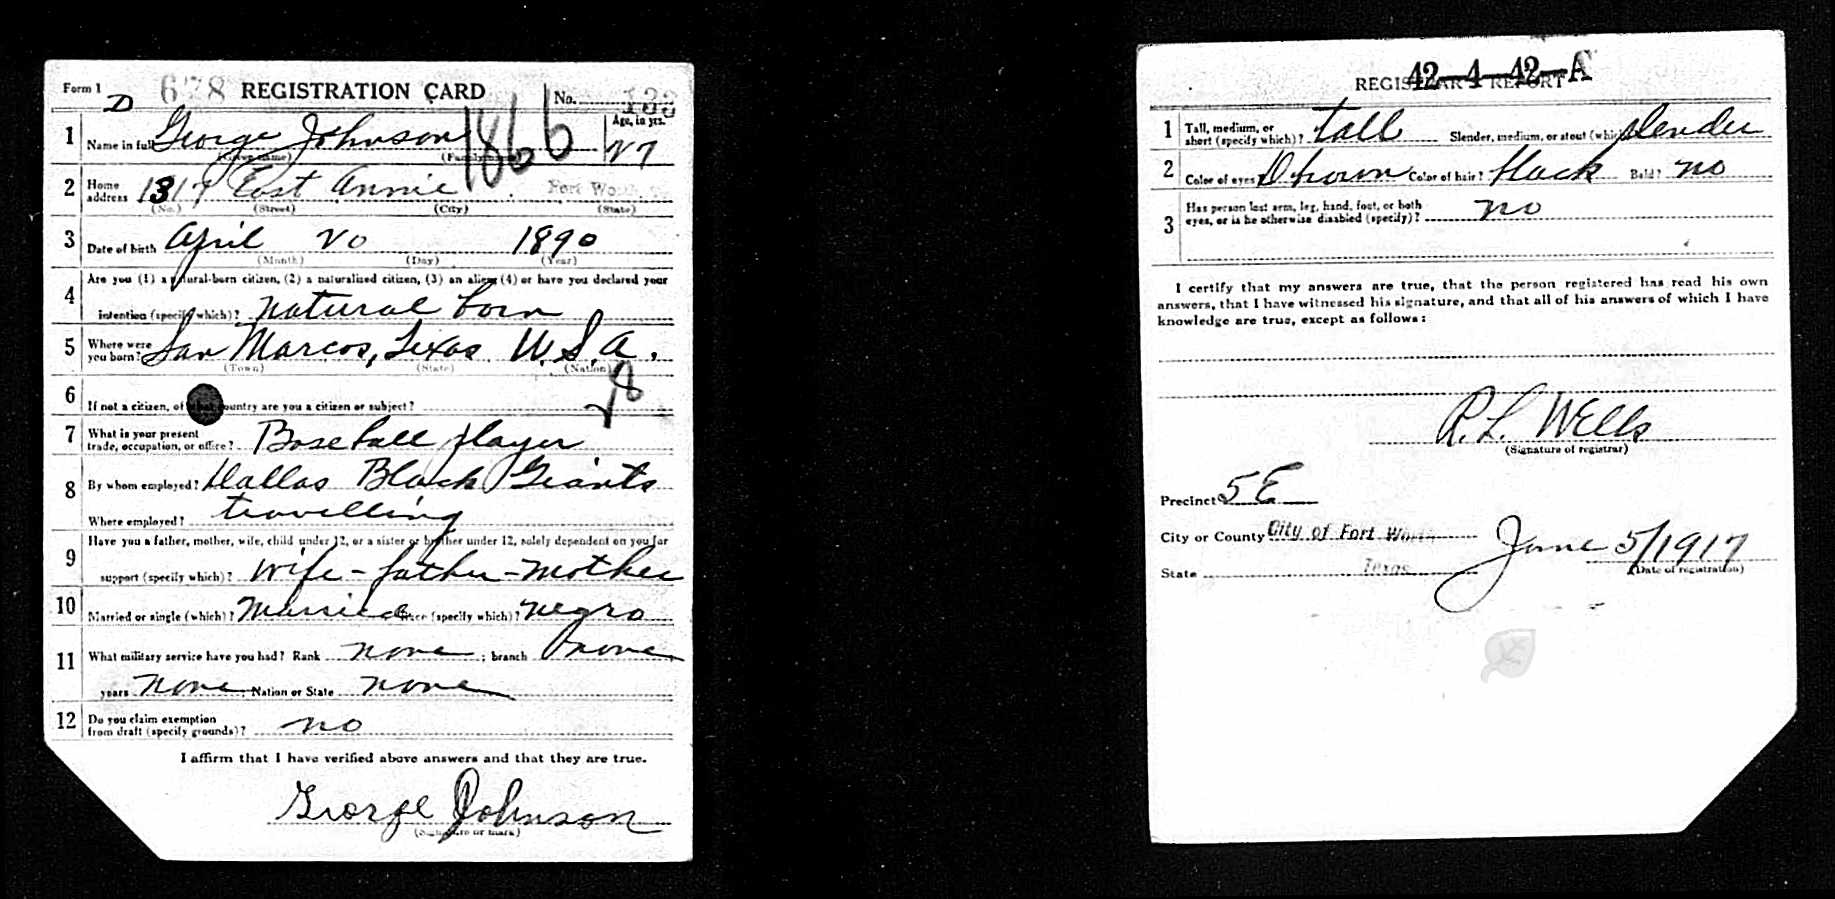 Form 1 678 REGISTRATION CARD No. 133
D
1 Name in full George Johnson 1866 Age, in yrs. 27
(Given name) (Family name)
2 Home address 1317 East Annie Fort Worth
(No.) (Street) (City) (State)
3 Date of birth April 20 1890
(Month) (Day) (Year)
4 Are you (1) a natural-born citizen, (2) a naturalized citizen, (3) an alien, (4) or have you declared your
intention (specify which)? natural born
5 Where were you born? San Marcos, Texas U.S.A.
(Town) (State) (Nation)
6 If not a citizen, of what country are you a citizen or subject?
7 What is your present trade, occupation, or office? Baseball player
8 By whom employed? Dallas Black Giants
Where employed? travelling
9 Have you a father, mother, wife, child under 12, or a sister or brother under 12, solely dependent on you for
support (specify which)? wife - father - mother
10 Married or single (which)? Married Race (specify which)? negro
11 What military service have you had? Rank none ; branch none
years none ; Nation or State none
12 Do you claim exemption from draft (specify grounds)? no
I affirm that I have verified above answers and that they are true.
George Johnson
(Signature or mark)
42-4-42-A
REGISTRAR'S REPORT
1 Tall, medium, or short (specify which)? tall Slender, medium, or stout (which)? slender
2 Color of eyes? Brown Color of hair? black Bald? no
3 Has person lost arm, leg, hand, foot, or both
eyes, or is he otherwise disabled (specify)? no
I certify that my answers are true, that the person registered has read his own
answers, that I have witnessed his signature, and that all of his answers of which I have
knowledge are true, except as follows:
R. L. Wells
(Signature of registrar)
Precinct 5 E
City or County City of Fort Worth June 5/1917
State Texas (Date of registration)